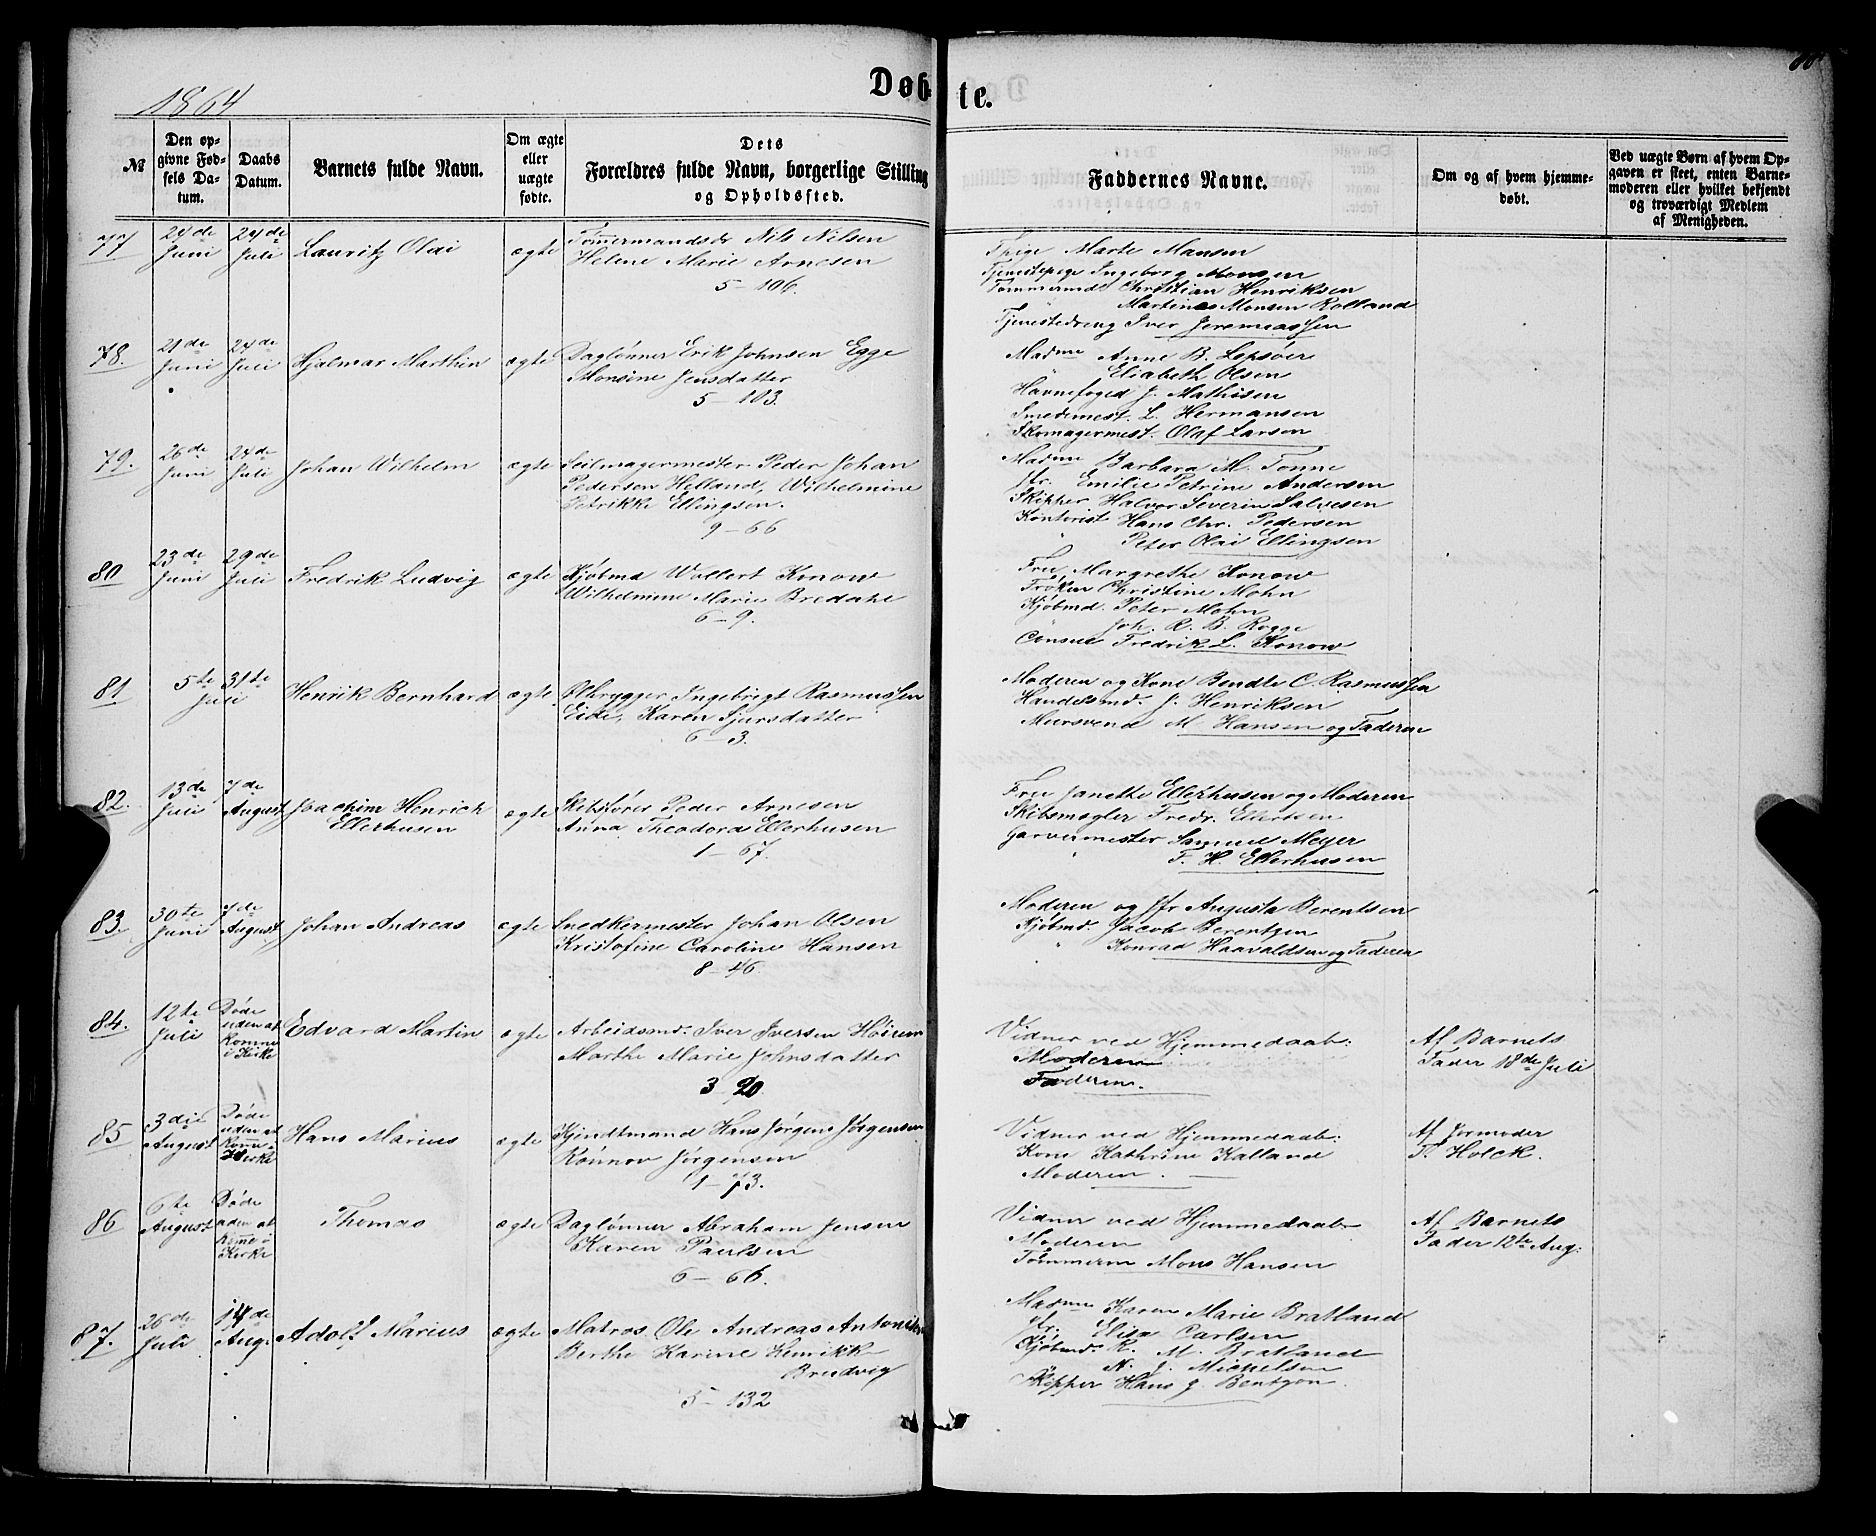 1864
Døbte.
№
Den opgivne Fødsels Datum.
Daabs Datum.
Barnets fulde Navn.
Om ægte eller uægte fødte.
Dets Forældres fulde Navn, borgerlige Stilling og Opholdssted.
Faddernes Navne.
Om og af hvem hjemmedøbt.
Ved uægte Børn af hvem Opgaven er skeet, enten Barnemoderen eller hvilket bekjendt og troværdigt Medlem af Menigheden.
77 24de Juni 24de Juli Lauritz Olai ægte Tømermandsdr Nils Nilsen
Helene Marie Arnesen
5-106.
Tpige Marte Mansen
Tjenestepige Ingeborg Monsen
Tømmermd. Christian Henriksen
" Martines Monsen Rolland
Tjenestedreng Iver Jeremiassen
78. 21de Juni 24de Juli Hjalmar Marthin ægte Daglønner Erik Johnsen Egge
Monsine Jensdatter
5-103.
Madme Anne B. Lepsøer
" Eliabeth Olsen
Havnefoged J. Mathisen
Smedemest. L. Hermansen
Skomagermest. Olaf Larsen
79. 26de Juni 24de Juli Johan Wilhelm ægte Seilmagermester Peder Johan
Pedersen Helland, Wilhelmine
Petrikke Ellingsen.
9-66
Madme Barbara M. Tonne
Jfr. Emilie Petrine Andersen
Skipper Halvor Severin Salvesen
Kontorist Hans Chr. Pedersen
" Peter Olai Ellingsen
80 23de Juni 29de Juli Fredrik Ludvig ægte Kjøbmd Wollert Konow
Wilhelmine Marie Bredahl
6-9.
Fru Margrethe Konow
Frøken Christine Mohn
Kjøbmd. Peter Mohn
Joh. R. B. Rogge
Consul Fredrik L. Konow
81 5te Juli 31te Henrik Bernhard ægte Ølbrygger Ingebrigt Rasmussen
Eide, Karen Sjursdatter
6-3.
Moderen og Kone Bendte C. Rasmussen
Handelsmd. J. Henriksen
Mursvend M. Hansen og Faderen
82. 13de Juli 7de August Joachim Henrich
Ellerhusen ægte Skibsfører Peder Arnesen
Anna Theodora Ellerhusen
1-67.
Fru Janette Ellerhusen og Moderen
Skibsmægler Fredr. Ellertsen
Garvermester Samuel Meyer
" F. H. Ellerhusen
83. 30te Juni 7de August Johan Andreas ægte Snedkermester Johan Olsen
Kristofine Caroline Hansen
8-46.
Moderen og Jfr Augusta Berentsen
Kjøbmd. Jacob Berentzen
" Konrad Haavaldsen og Faderen
84. 12te Juli Døde uden at komme i Kirke Edvard Martin ægte Arbeidsmd. Iver Iversen Høirem
Marthe Marie Johnsdatter
3 20.
Vidner ved Hjemmedaab:
Moderen
Faderen.
Af Barnets
Fader 18de Juli
85 3die August Døde uden at komme i Kirke Hans Marius ægte Kjendtmand Hans Jørgens Jørgensen
Rønnov Jørgensen
1-73.
Vidner ved Hjemmedaab:
Kone Kathrine Kalland
Moderen.
Af Jormoder
T. Holck.
86 6te August Døde uden at komme i Kirke Thomas ægte Dagløner Abraham Jensen
Karen Paulsen
6-66.
Vidner ved Hjemmedaab
Moderen
Tømmerm Mons Hansen
Af Barnets
Fader 12te Aug:
87. 26de Juli 14de Aug. Adolf Marius ægte Matros Ole Andreas Antonisen
Berthe Karine Henrikk
Bredvig
5-132
Madme Karen Marie Bratland
Jfr. Elisa Carlsen
Kjøbmd. R. M. Bratland
N. J. Michelsen
Skipper Hans J. Bentzon.